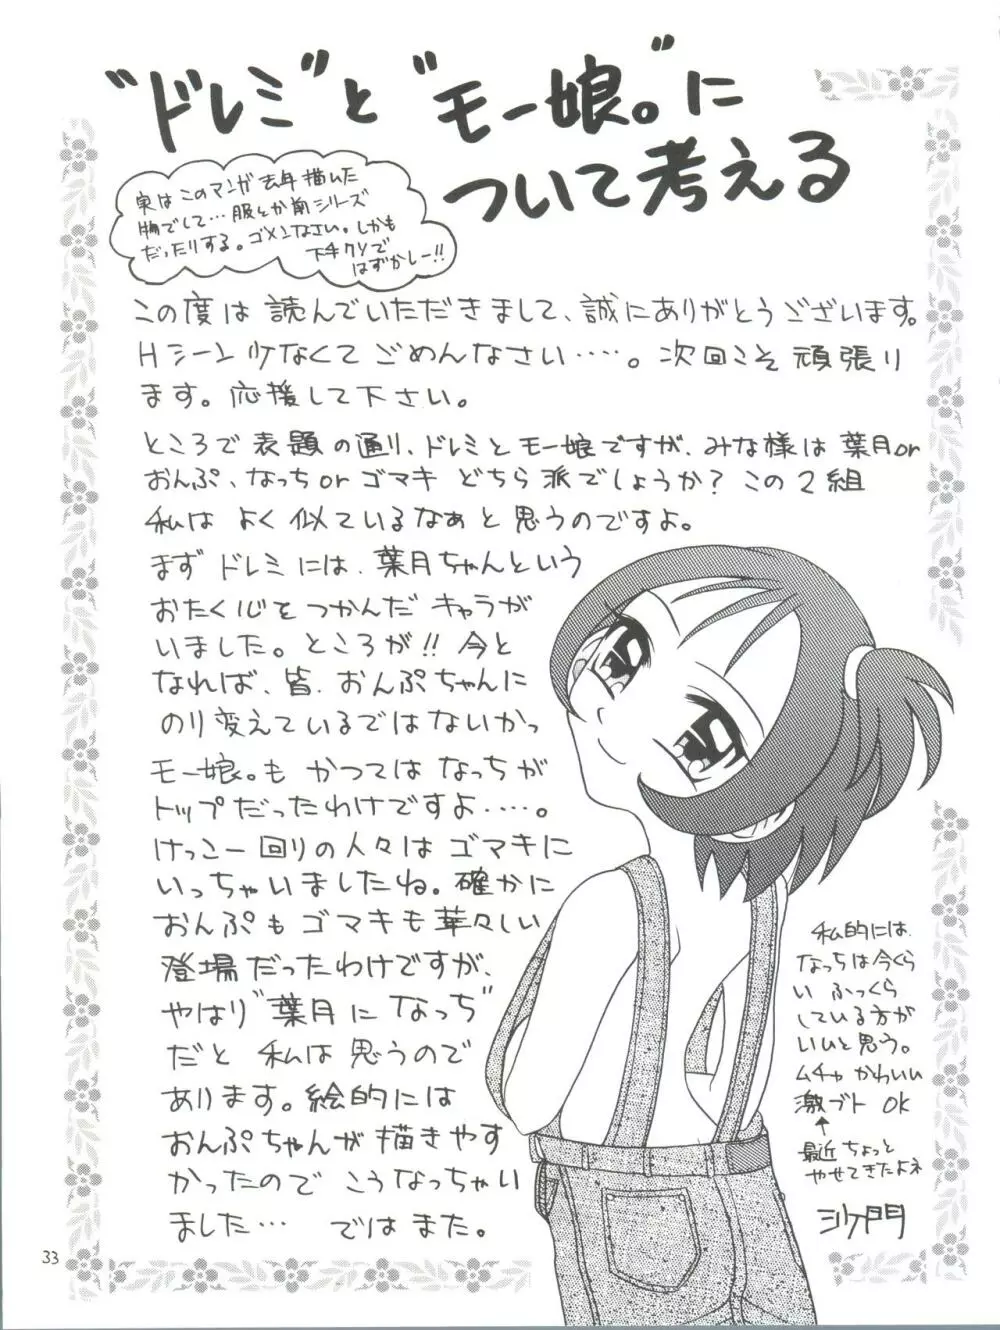 “ドレミ”と“モー娘。”に
ついて考える
実はこのマンガ去年描いた
物でして…服とか前シリーズ
だったりする。ゴメンなさい。しかも
下手クソで
はずかしー!!
この度は読んでいただきまして、誠にありがとうございます。
Hシーン少なくてごめんなさい‥‥。次回こそ頑張り
ます。応援して下さい。
ところで表題の通り、ドレミとモー娘ですが、みな様は葉月or
おんぷ、なっちorゴマキ どちら派でしょうか?この2組
私は よく似ているなぁと思うのですよ。
まず ドレミには、葉月ちゃんという
おたく心をつかんだキャラが
いました。ところが!!今と
なれば、皆、おんぷちゃんに
のり変えているではないかっ
モー娘。も かつては なっちが
トップだったわけですよ‥‥。
けっこー回りの人々はゴマキに
いっちゃいましたね。確かに
おんぷもゴマキも華々しい
登場だったわけですが、
やはり“葉月になっち”
だと 私は思うので
あります。絵的には
おんぷちゃんが描きやす
かったので こうなっちゃい
ました… ではまた。
私的には、
なっちは今くら
い ふっくら
している方が
いいと思う。
ムチャ かわいい
激ブト OK
↑
最近ちょっと
やせてきたよネ
沙門
33